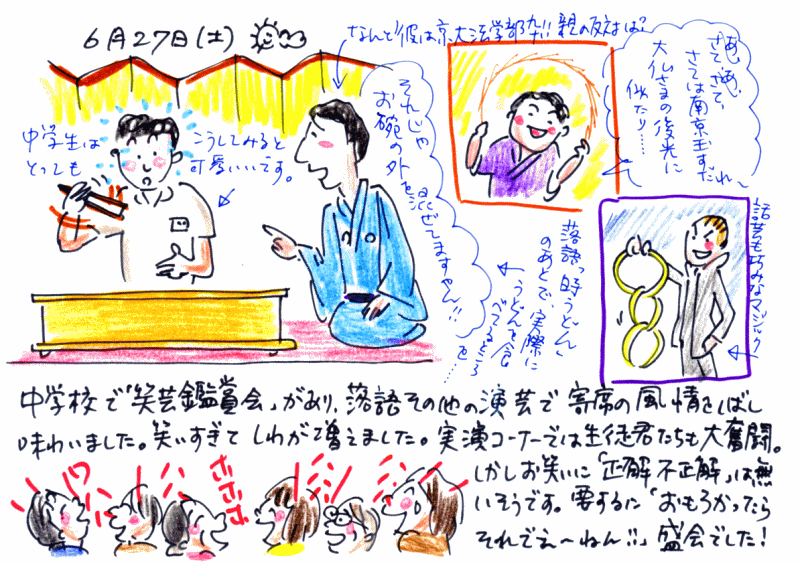 6月27日(土)
なんと彼は京大法学部卒!! 親の反対は?
あ、
さて、さて、
さては南京玉すだれ〜
大仏さまの後光に
似たり……
中学生は
とっても
こうしてみると
可愛いいです。
それじゃ
お碗の外を混ぜてますやん!!
落語「時うどん」
のあとで、実際に
うどんを食
べてるところ
を…
話芸も巧みなマジック
中学校で「笑芸鑑賞会」があり、落語その他の演芸で寄席の風情をしばし
味わいました。笑いすぎてしわが増えました。実演コーナーでは生徒君たちも大奮闘。
しかしお笑いに「正解不正解」は無
いそうです。要するに「おもろかったら
それでえ〜ねん!!」盛会でした!